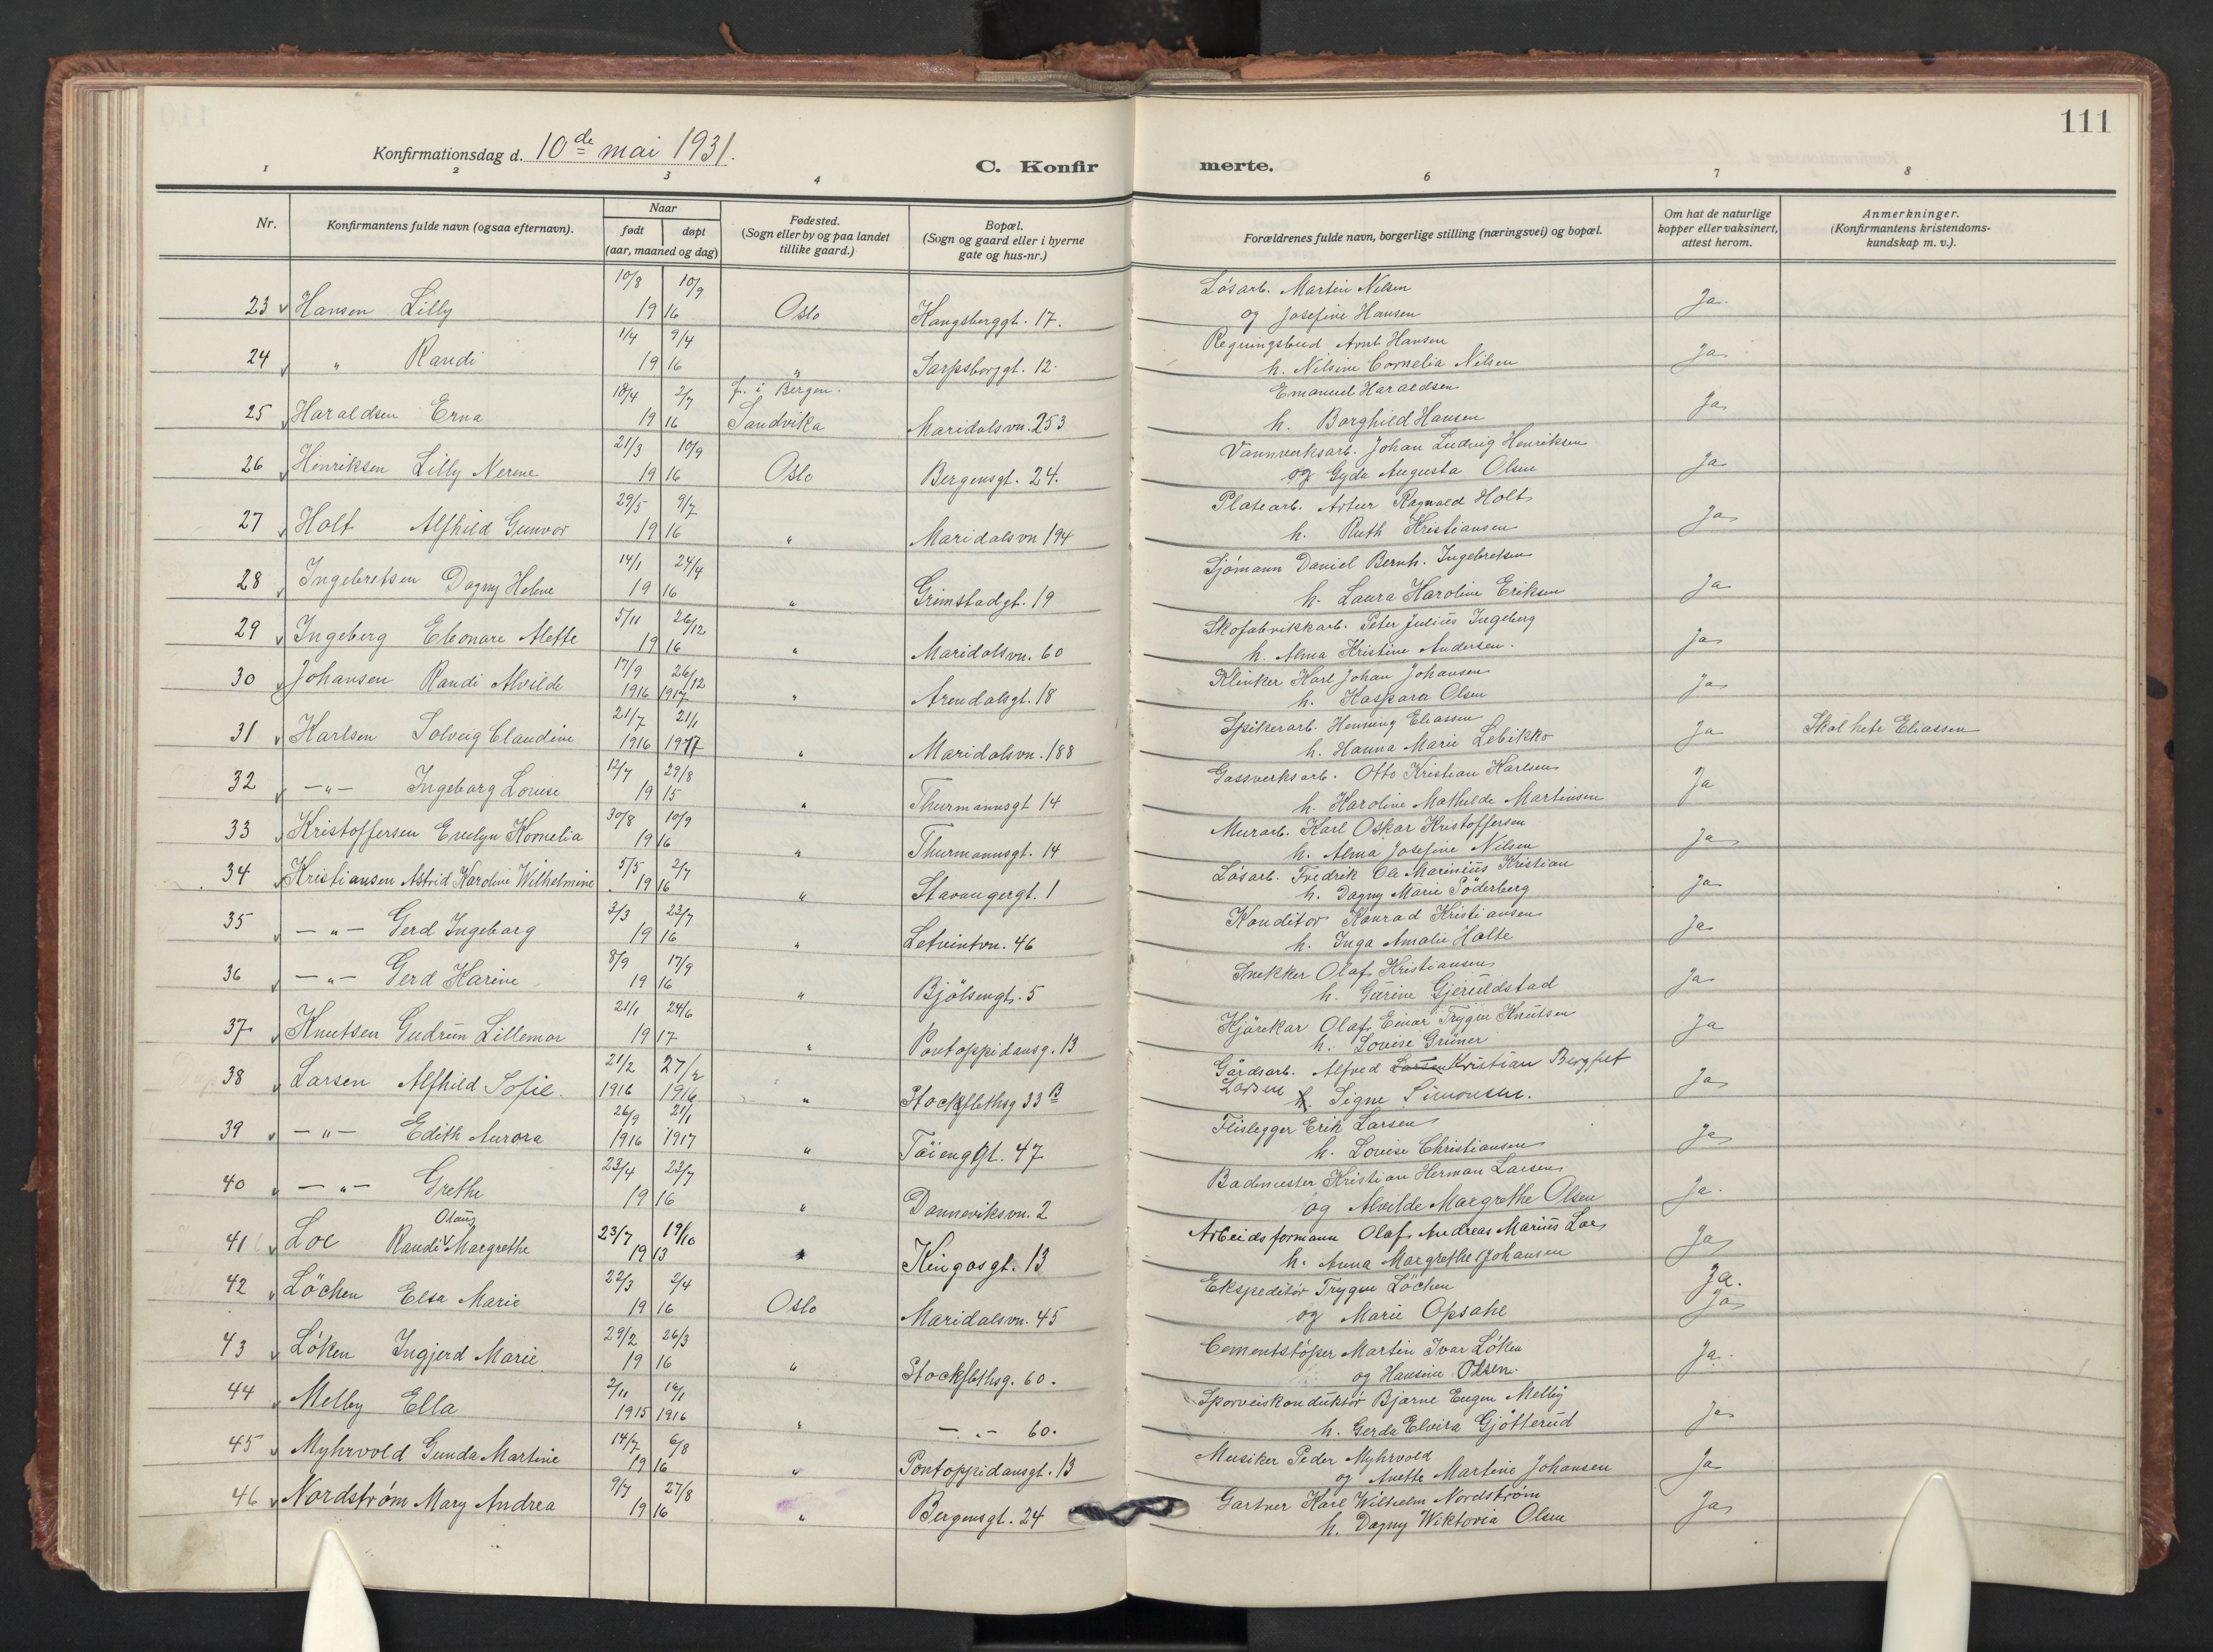 111
Konfirmationsdag d. 10de mai 1931.
C. Konfirmerte.
1 2 3 4 6 7 8
Nr.
Konfirmantens fulde navn (ogsaa efternavn).
Naar
født døpt
(aar, maaned og dag)
Fødested.
(Sogn eller by og paa landet
tillike gaard.)
Bopæl.
(Sogn og gaard eller i byerne
gate og hus-nr.)
Forældrenes fulde navn, borgerlige stilling (næringsvei) og bopæl.
Om hat de naturlige
kopper eller vaksinert,
attest herom.
Anmerkninger.
(Konfirmantens kristendoms-
kundskap m. v.).
10/8 10/9 Løsarb. Martin Nilsen
23 Hansen Lilly 19 16 Oslo Kongsberggt. 17. og Josefine Hansen Ja.
1/4 9/4 Regningsbud Arnt Hansen
24 " Randi 19 16 " Sarpsborggt. 12. h. Nilsine Cornelia Nilsen Ja
18/4 2/7 f. i Bergen. Emanuel Haraldsen
25 Haraldsen Erna 19 16 Sandvika Maridalsvn. 253 h. Borghild Hansen Ja
21/3 10/9 Vannverksarb. Johan Ludvig Henriksen
26 Henriksen Lilly Nerene 19 16 Oslo Bergensgt. 24. og Gyda Augusta Olsen Ja
29/5 9/7 Platearb. Artur Ragnvald Holt
27 Holt Alfhild Gunvor 19 16 " Maridalsvn 194 h. Ruth Kristiansen Ja
14/1 24/4 Sjömann Daniel Bernh. Ingebretsen
28 Ingebretsen Dagny Helene 19 16 " Grimstadgt. 19 h. Laura Karoline Eriksen Ja
5/11 26/12 Skofabrikkarb. Peter Julius Ingeberg
29 Ingeberg Eleonare Alette 19 16 " Maridalsvn. 60 h. Alma Kristine Andersen. Ja
17/9 26/12 Klinker Karl Johan Johansen
30 Johansen Randi Alvilde 1916 1917 " Arendalsgt. 18 h. Kaspara Olsen Ja
21/7 21/1 Spikerarb. Henning Eliassen
31 Karlsen Solveig Claudine 1916 1917 " Maridalsvn. 188 h. Hanna Marie Lebikko Ja Skal hete Eliassen
12/7 29/8 Gassverksarb. Otto Kristian Karlsen
32 — " — Ingeborg Louise 19 15 " Thurmannsgt 14 h. Karoline Mathilde Martinsen Ja
30/8 10/9 Murarb. Karl Oskar Kristoffersen
33 Kristoffersen Evelyn Kornelia 19 16 " Thurmannsgt. 14 h. Alma Josefine Nilsen Ja
5/5 2/7 Løsarb. Fredrik Ole Marinius Kristian
34 Kristiansen Astrid Karoline Wilhelmine 19 16 " Stavangergt. 1 h. Dagny Marie Söderberg Ja
3/3 23/7 Konditor Konrad Kristiansen
35 — " — Gerd Ingeborg 19 16 " Letvintvn. 46 h. Inga Amalie Holte Ja
8/9 17/9 Snekker Olaf Kristiansen
36 — " — Gerd Karine 19 16 " Bjölsengt. 5 h. Gurine Gjeruldstad Ja
21/1 24/6 Kjörekar Olaf Einar Trygve Knutsen
37 Knutsen Gudrun Lillemor 19 17 " Pontoppidansg. 13 h. Lovise Grüner Ja
21/2 27/2 Gårdsarb. Alfred Larsen Kristian Bergfut
38 Larsen Alfhild Sofie. 1916 1916 " Stockflethsg 33 B Larsen h. Signe Simonsen. Ja
26/9 21/1 Flislegger Erik Larsen
39 — " — Edith Aurora 1916 1917 " Töienggt. 47 h. Louise Christiansen Ja
23/4 23/7 Bademester Kristian Herman Larsen
40 — " — Grethe 19 16 " Donneviksvn. 2 og Alvilde Margrethe Olsen Ja.
Olaug 23/7 19/10 Arbeidsformann Olaf Andreas Marius Loe
41 Loe Randi Margrethe 19 13 " Kingosgt. 13 h. Anna Margrethe Johansen Ja
22/3 2/4 Ekspeditør Trygve Löchen Ja.
42 Löchen Elsa Marie 19 16 Oslo Maridalsvn. 45 og Marie Opsahl Ja
29/2 26/3 Cementstöper Martin Ivar Løken
43 Løken Ingjerd Marie 19 16 " Stockflethsg. 60. og Hansine Olsen. Ja.
2/11 16/1 Sporveiskonduktør Bjarne Eugen Melby
44 Melby Ella 1915 1916 " — " — 60. h. Gerda Elvira Gjötterud Ja
14/7 6/8 Musiker Peder Myhrvold
45 Myhrvold Gunda Martine 19 16 " Pontoppidansgt. 13 og Anette Martine Johansen Ja
9/7 27/8 Gartner Karl Wilhelm Nordström
46 Nordstrøm Mary Andrea 19 16 " Bergensgt. 24 h. Dagny Wiktoria Olsen Ja